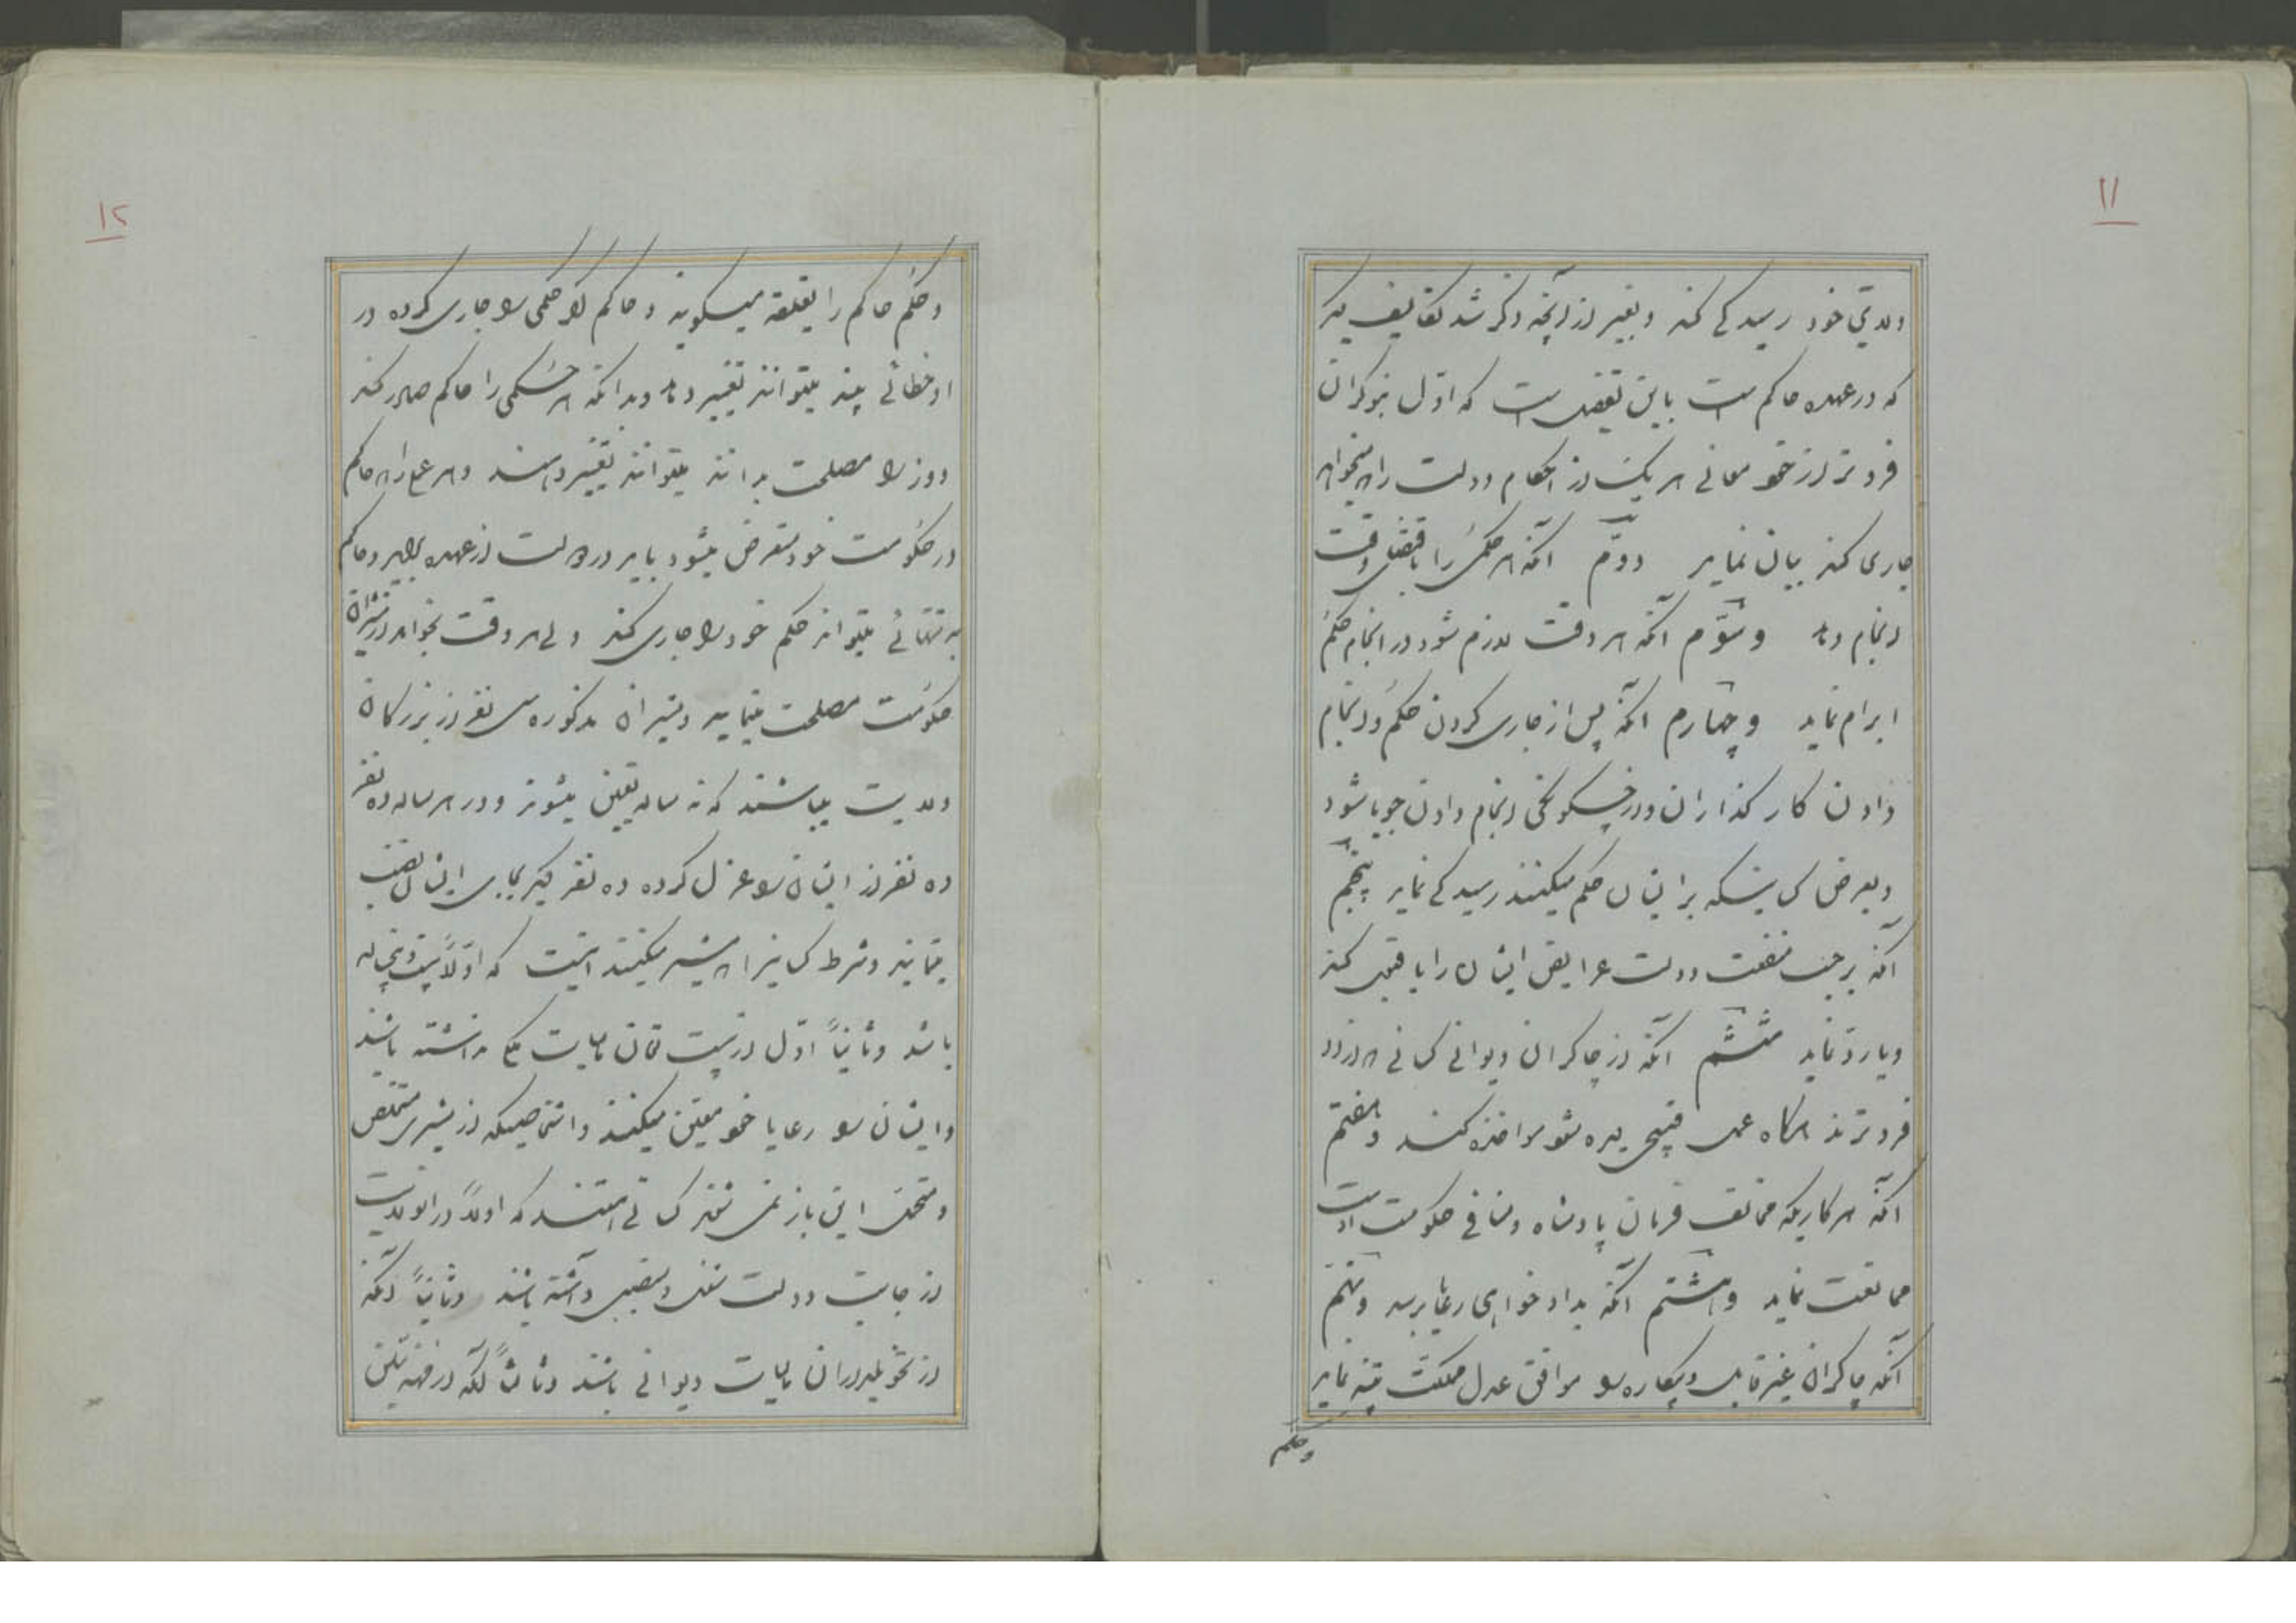 ۱۱
ولایتی خود رسیدگی کند و بغیر از آنچه ذکر شد تکالیف دیگر
که در عهده حاکم است باین تفصیل است که اوّل بنوکران
فروتر از خود معانی هر یک از احکام دولت را که میخواهد
جاری کند بیان نماید دوّم آنکه هر حکمی را باقتضای وقت
انجام دهد و سوّم آنکه هر وقت لازم شود در انجام حکم
ابرام نماید و چهارم آنکه پس از جاری کردن حکم و انجام
دادن کار گذاران و از چگونگی انجام دادن جویا شود
و بعرض کسانیکه بر ایشان حکم میکنند رسیدگی نماید پنجم
آنکه برحسب منفعت دولت عرایض ایشان را یا قبول کند
و یا رد نماید ششم آنکه از چاکران دیوانی کسانی که از او
فروترند هرگاه عمل قبیحی دیده شود مواخذه کند و هفتم
آنکه هر کاریکه مخالف فرمان پادشاه و منافی حکومت اوست
ممانعت نماید و هشتم آنکه بدادخواهی رعایا برسد و نهم
آنکه چاکران غیر قابل و بیکاره را موافق عدل مملکت تنبیه نماید
وحکم
۱۲
و حکم حاکم را یقلقه میگویند و حاکم اگر حکمی را جاری کرده در
او خطائی بیند میتواند تغییر دهد و بدانکه هر حکمی را حاکم صادر کند
و وزرا مصلحت بدانند میتوانند تغییر دهند و هر عملی را که حاکم
در حکومت خود متعرض میشود باید در دولت از عهده براید و حاکم
به تنهائی میتواند حکم خود را جاری کند ولی هر وقت بخواهد از مشیران
حکومت مصلحت مینماید و مشیران مذکوره سی نفر از بزرگان
ولایت میباشند که نه ساله تعیین میشوند و در هر ساله ده نفر
ده نفر از ایشان را عزل کرده ده نفر دیگر بجای ایشان نصب
مینمایند و شرط کسانیرا که مشیر میکنند اینست که اوّلاً بیست و پنج ساله
باشد و ثانیاً اوّل از بیست تومان مالیات کم نداشته باشند
و ایشان را رعایا خود معیّن میکنند و اشخاصیکه از مشیری مستخلص
و متحمل این بار نمیشوند کسانی هستند که اولاً در آن ولایت
از جانب دولت شغل و منصبی داشته باشند و ثانیاً آنکه
از تحویلداران مالیات دیوانی باشند و ثالثاً آنکه از